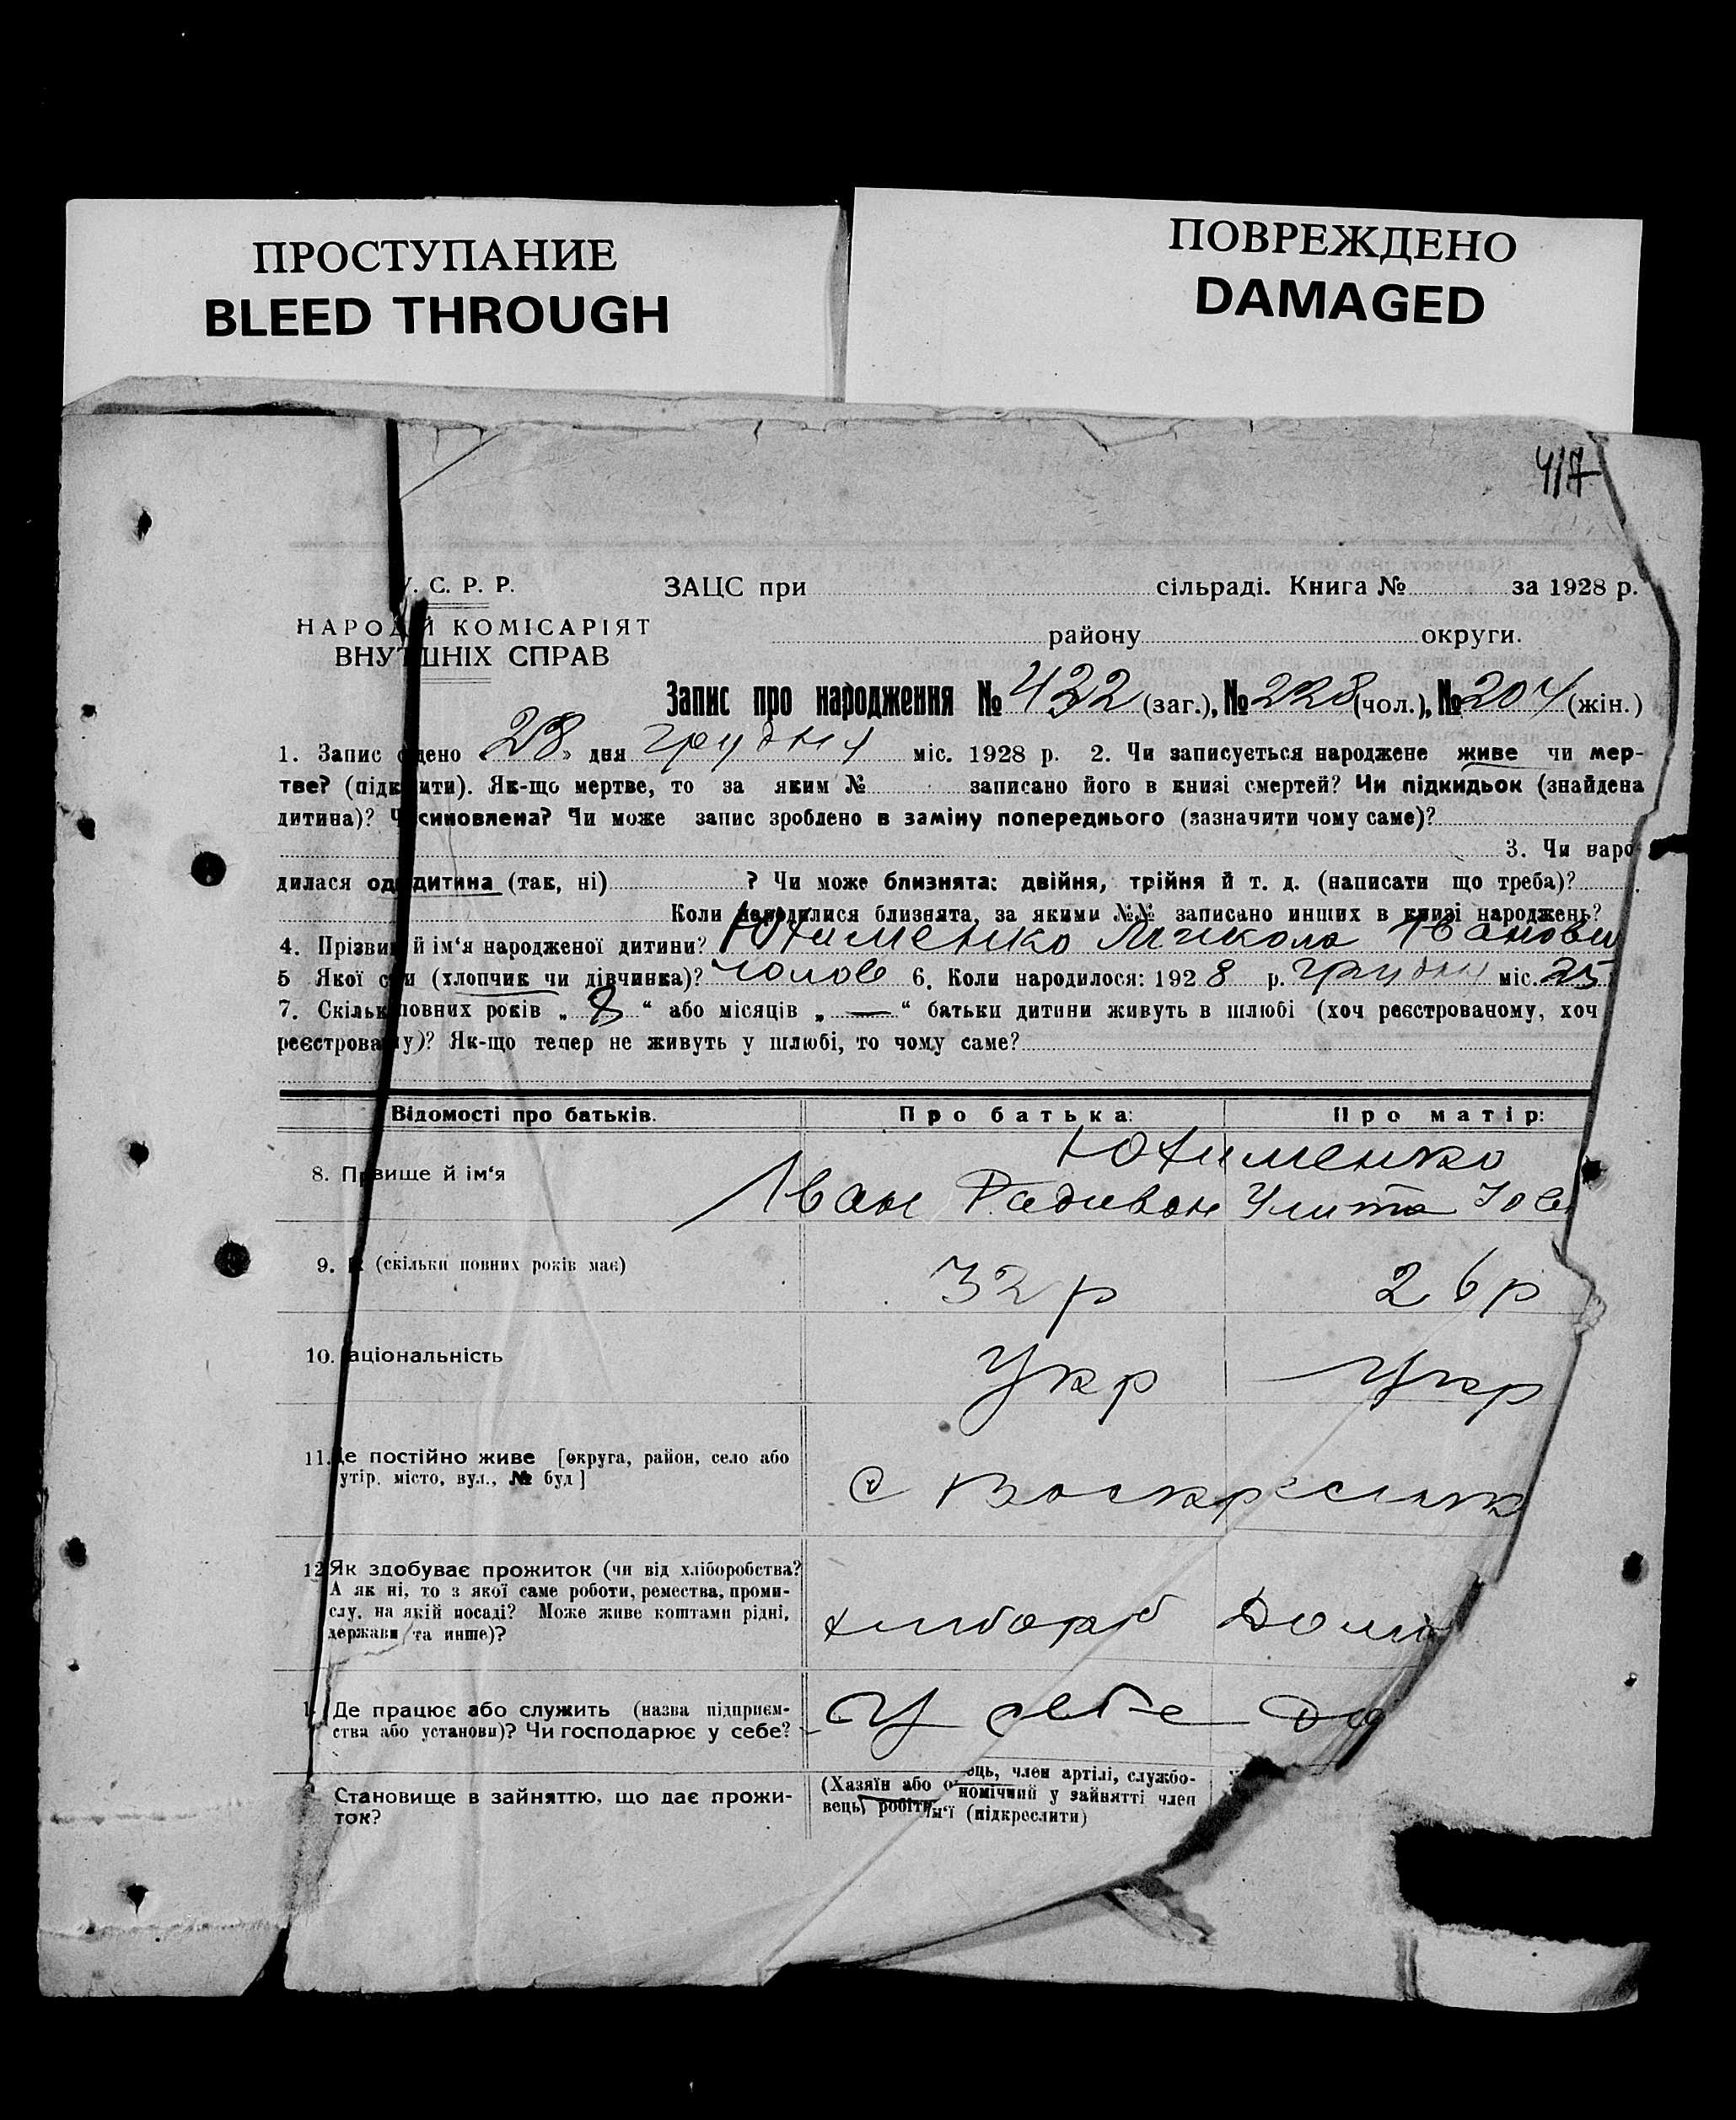 ПРОСТУПАНИЕ
BLEED THROUGH
ПОВРЕЖДЕНО
DAMAGED
417
У. С. Р. Р.
НАРОД Й КОМІСАРІЯТ
ВНУТ ШНІХ СПРАВ
ЗАЦС при сільраді. Книга № за 1928 р.
району округи.
Запис про народження № 432 (заг.), № 228 (чол.), № 204 (жін.)
1. Запис дено „28» дня грудня міс. 1928 р. 2. Чи записується народжене живе чи мер-
тве? (підк ити). Як-що мертве, то за яким № записано його в книзі смертей? Чи підкидьок (знайдена
дитина)? Ч синовлена? Чи може запис зроблено в заміну попереднього (зазначити чому саме)?
3. Чи наро-
дилася од дитина (так, ні) ? Чи може близнята: двійня, трійня й т. д. (написати що треба)?
Коли народилися близнята, за якими №№ записано инших в книзі народжень?
4. Прізви й ім‘я народженої дитини? Юхименко Микола Іванови
5 Якої с и (хлопчик чи дівчинка)? чолов 6. Коли народилося: 1928 р. грудня міс. 25
7. Скільк повних років „ 8 “ або місяців „ — “ батьки дитини живуть в шлюбі (хоч реєстрованому, хоч
реєстрова у)? Як-що тепер не живуть у шлюбі, то чому саме?
Відомості про батьків. Про батька: Про матір:
8. Пр вище й ім‘я Юхименко
Іван Радивон Улита Юс
9. (скільки повних років має) 32 р 26 р
10. аціональність Укр Укр
11. Де постійно живе [округа, район, село або
утір, місто, вул., № буд] с Воскресенк
12 Як здобуває прожиток (чи від хліборобства?
А як ні, то з якої саме роботи, ремества, проми-
слу, на якій посаді? Може живе коштами рідні,
держави та инше)? хлібороб Дом
1 Де працює або служить (назва підприєм-
ства або установи)? Чи господарює у себе? У себе до
Становище в зайняттю, що дає прожи-
ток?
(Хазяїн або о ець, член артілі, службо-
вець, робітн номічний у зайнятті член
м‘ї (підкреслити)